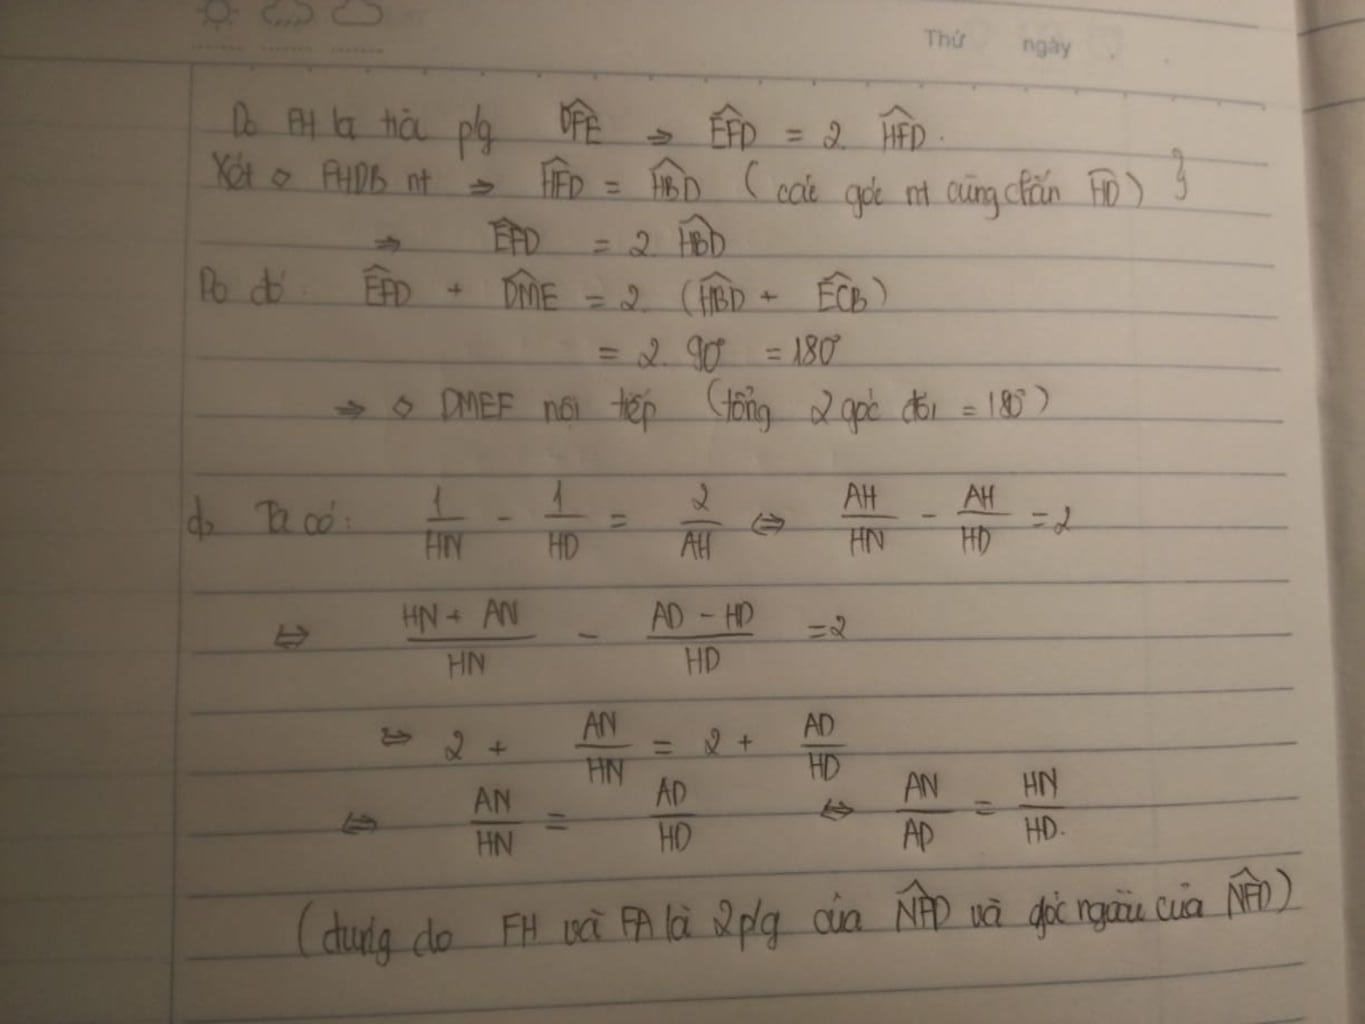 Thứ ngày
Do FH là tia p/g \widehat{DFE} ⇒ \widehat{EFD} = 2. \widehat{HFD}.
Xét ◇ FHDB nt ⇒ \widehat{HFD} = \widehat{HBD} (các góc nt cùng chắn \widehat{HD}) }
⇒ \widehat{EFD} = 2 \widehat{HBD}
Do đó: \widehat{EFD} + \widehat{DME} = 2. (\widehat{HBD} + \widehat{ECB})
= 2. 90° = 180°
⇒ ◇ DMEF nội tiếp (tổng 2 góc đối = 180°)
d, Ta có: \frac{1}{HN} - \frac{1}{HD} = \frac{2}{AH} ⇔ \frac{AH}{HN} - \frac{AH}{HD} = 2
⇔ \frac{HN + AN}{HN} - \frac{AD - HD}{HD} = 2
⇔ 2 + \frac{AN}{HN} = 2 + \frac{AD}{HD}
⇔ \frac{AN}{HN} = \frac{AD}{HD} ⇔ \frac{AN}{AD} = \frac{HN}{HD}.
(đúng do FH và FA là 2 p/g của \widehat{NFD} và góc ngoài của \widehat{NFD})